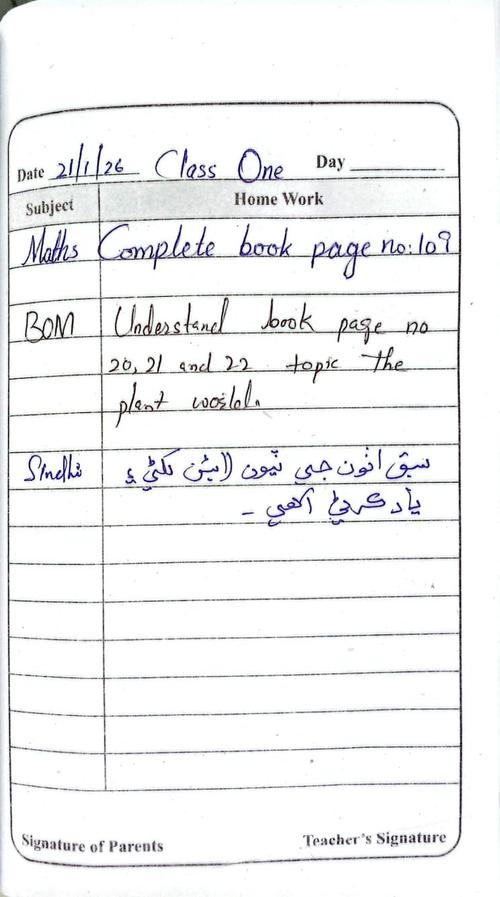 Date 21/1/26 Class One Day
Subject Home Work
Maths Complete book page no: 109
BOM Understand book page no
20, 21 and 22 topic the
plant world.
Sindhi سبق اٺون جي ٽيون لائين لکڻي ۽
ياد ڪرڻي آهي۔
Signature of Parents Teacher's Signature